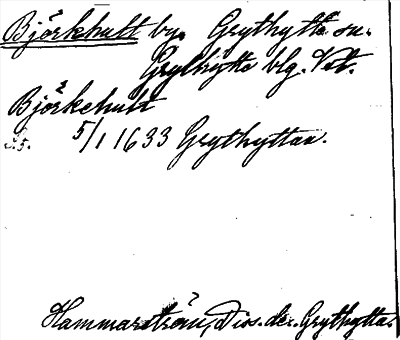 Björkhult by. Grythytte sn.
Grythytte blg. Vstm.
Björkehult
S. 5. 5/1 1633 Grythyttan.
Hammarström, Diss. de Grythytta.